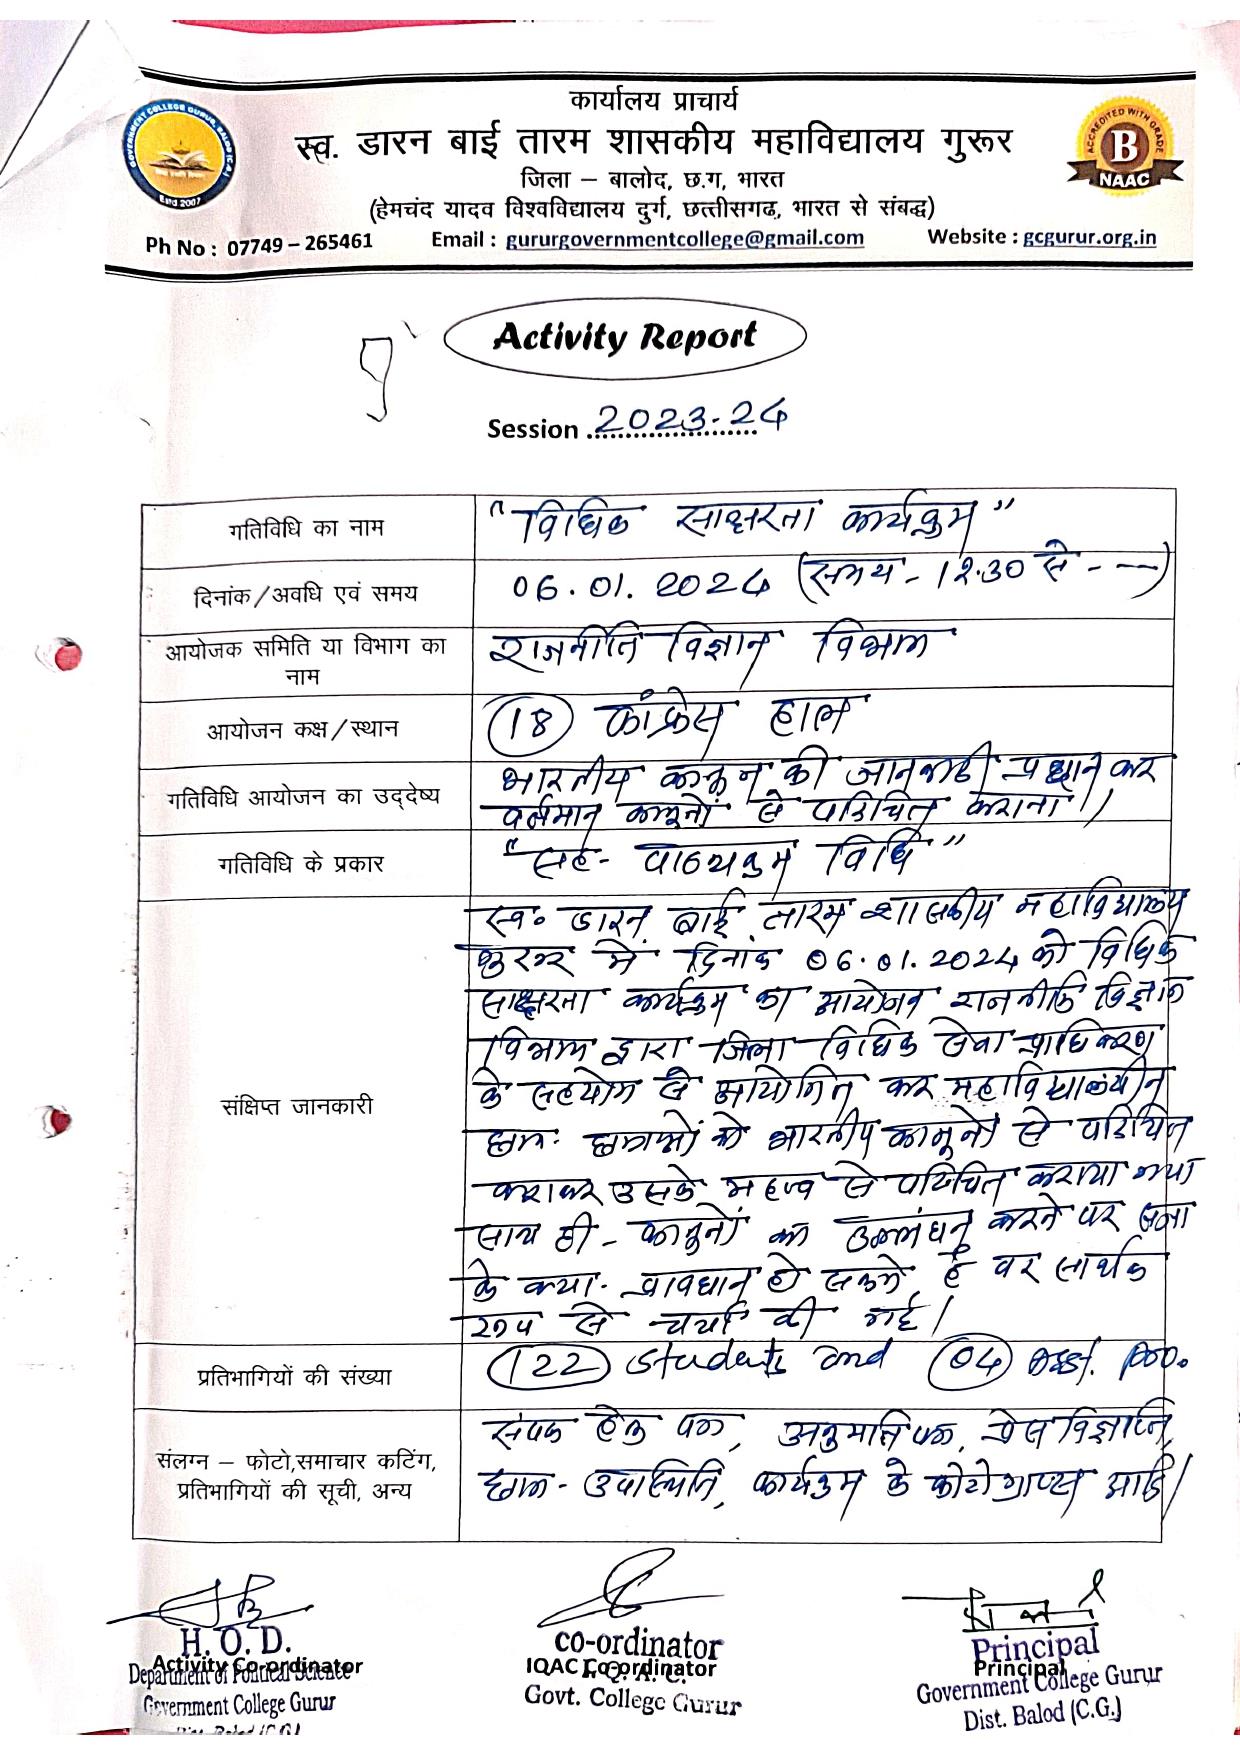 कार्यालय प्राचार्य
स्व. डारन बाई तारम शासकीय महाविद्यालय गुरूर
जिला – बालोद, छ.ग, भारत
(हेमचंद यादव विश्वविद्यालय दुर्ग, छत्तीसगढ, भारत से संबद्ध)
Ph No : 07749 – 265461 Email : gururgovernmentcollege@gmail.com Website : gcgurur.org.in
GOVERNMENT COLLEGE GURUR, BALOD (C.G.)
Estd 2007
ACCREDITED WITH GRADE
B
NAAC
Activity Report
Session 2023-24
गतिविधि का नाम
"विधिक साक्षरता कार्यक्रम"
दिनांक/अवधि एवं समय
06.01.2024 (समय - 12.30 से ---)
आयोजक समिति या विभाग का
नाम
राजनीति विज्ञान विभाग
आयोजन कक्ष/स्थान
18 कांफ्रेस हाल
गतिविधि आयोजन का उद्देष्य
भारतीय कानून की जानकारी प्रधान कर
वर्तमान कानूनों से परिचित कराना।
गतिविधि के प्रकार
"सह- पाठ्यक्रम विधि"
संक्षिप्त जानकारी
स्व० डारन बाई तारम शासकीय महाविद्यालय
गुरूर में दिनांक 06.01.2024 को विधिक
साक्षरता कार्यक्रम का आयोजन राजनीति विज्ञान
विभाग द्वारा जिला विधिक सेवा प्राधिकरण
के सहयोग से आयोजित कर महाविद्यालयीन
छात्र- छात्राओं को भारतीय कानूनों से परिचित
कराकर उसके महत्व से परिचित कराया गया
साथ ही - कानूनों का उल्लंघन करने पर सजा
के क्या- प्रावधान हो सकते है पर सार्थक
रूप से चर्चा की गई।
प्रतिभागियों की संख्या
122 students and 04 Asst. Pro.
संलग्न – फोटो,समाचार कटिंग,
प्रतिभागियों की सूची, अन्य
हेतु पत्र, अनुमति पत्र, प्रेस विज्ञप्ति,
छात्र- उपस्थिति, कार्यक्रम के फोटोग्राप्स आदि।
H. O. D.
Activity Co-ordinator
Department of Political Science
Government College Gurur
Dist. Balod (C.G.)
co-ordinator
IQAC Co-ordinator
I. Q. A. C.
Govt. College Gurur
Principal
Principal
Government College Gurur
Dist. Balod (C.G.)